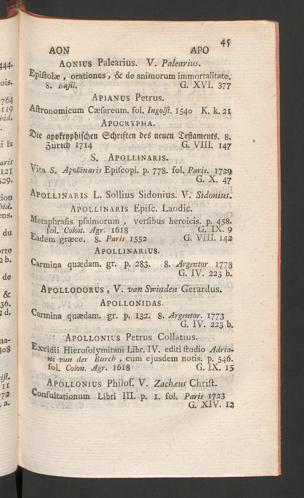 45
AON APO
AONIUS Palearius. V. Palearius.
Epistolæ, orationes, & de animorum immortalitate.
8. Basil. G. XVI. 377
APIANUS Petrus.
Astronomicum Cæsareum. fol. Ingolst. 1540 K. k. 21
APOCRYPHA.
Die apokryphischen Schriften des neuen Testaments. 8.
Zurich 1714 G. VIII. 147
S. APOLLINARIS.
Vita S. Apollinaris Episcopi. p. 778. fol. Paris. 1729
G. X. 47
APOLLINARIS L. Sollius Sidonius. V. Sidonius.
APOLLINARIS Episc. Laodic.
Metaphrasis psalmorum, versibus heroicis. p. 458.
fol. Colon. Agr. 1618 G. IX. 9
Eadem græce. 8. Paris 1552 G. VIII. 142
APOLLINARIUS.
Carmina quædam. gr. p. 283. 8. Argentor 1778
G. IV. 223 b.
APOLLODORUS, V. van Swinden Gerardus.
APOLLONIDAS.
Carmina quædam. gr. p. 132. 8. Argentor. 1773
G. IV. 223 b.
APOLLONIUS Petrus Collatius.
Excidii Hierosolymitani Libr. IV. editi studio Adria-
ni van der Burch, cum ejusdem notis. p. 546.
fol. Colon. Agr. 1618 G. IX. 15
APOLLONIUS Philos. V. Zachæus Christ.
Consultationum Libri III. p. 1. fol. Paris 1723
G. XIV. 12